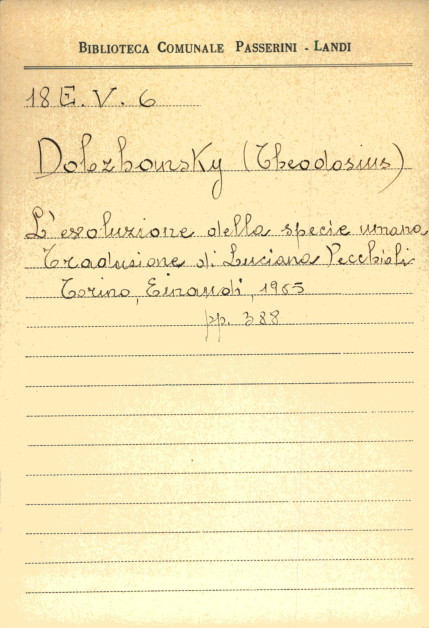 BIBLIOTECA COMUNALE PASSERINI - LANDI
18 E. V. 6
Dobzhansky (Theodosius)
L'evoluzione della specie umana
Traduzione di Luciana Pecchioli
Torino, Einaudi, 1965
pp. 388